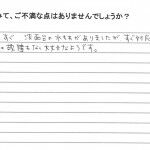 みて、ご不満な点はありませんでしょうか？
すぐ 洗面台の水もれがありましたが すぐ対応
の故障もなく大丈夫なようです。